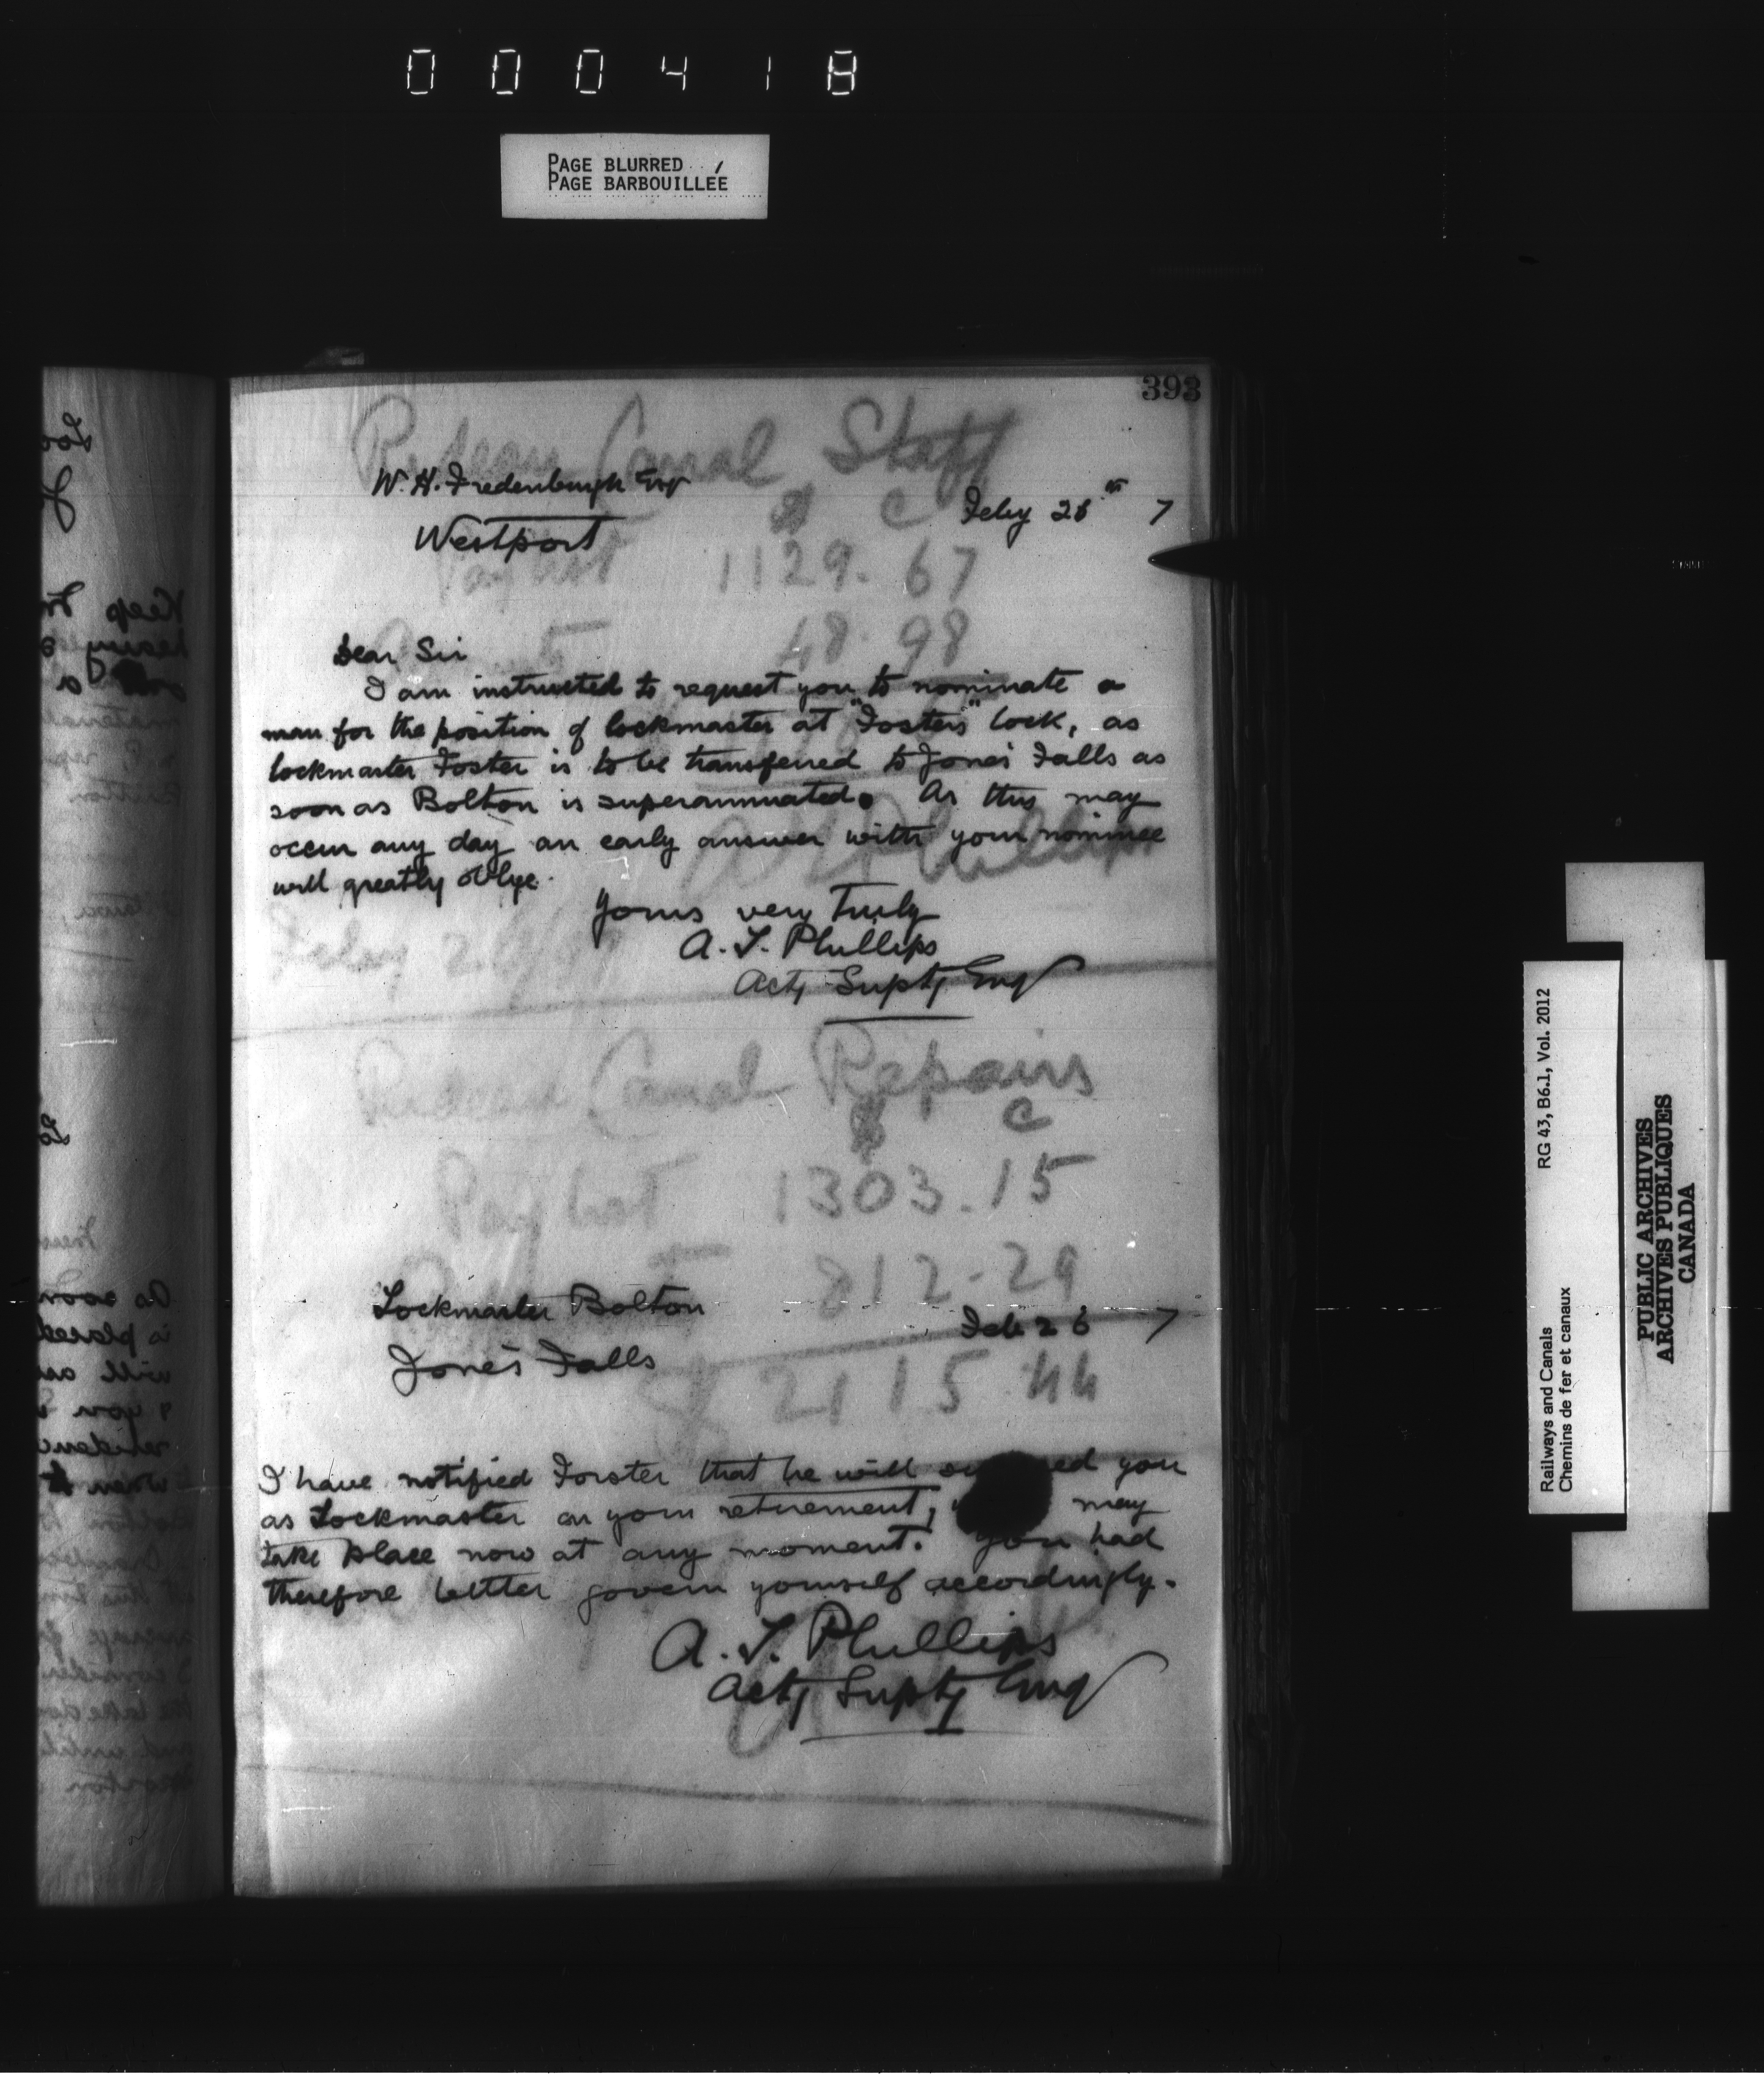 000418
PAGE BLURRED
PAGE BARBOUILLÉE
393
Rideau Canal Staff
W. H. Fredenburgh Esq
$ C
Feby 26th 7
Westport
Pay List 1129. 67
48. 98
Dear Sir
I am instructed to request you to nominate a
man for the position of lockmaster at "Fosters" lock, as
lockmaster Foster is to be transferred to Jones Falls as
soon as Bolton is superannuated. As this may
occur any day an early answer with your nominee
will greatly oblige.
Yours very Truly
A. T. Phillips
Actg Suptg Eng
Feby 26/97
Rideau Canal Repairs
$ C
Pay List 1303. 15
812. 29
Lockmaster Bolton
Feb 26 7
Jones Falls
$ 2115. 44
I have notified Forster that he will you
as Lockmaster on your retirement, may
take place now at any moment. You had
therefore better govern yourself accordingly.
A. T. Phillips
Actg Suptg Eng
Railways and Canals
Chemins de fer et canaux
RG 43, B6.1, Vol. 2012
PUBLIC ARCHIVES
ARCHIVES PUBLIQUES
CANADA